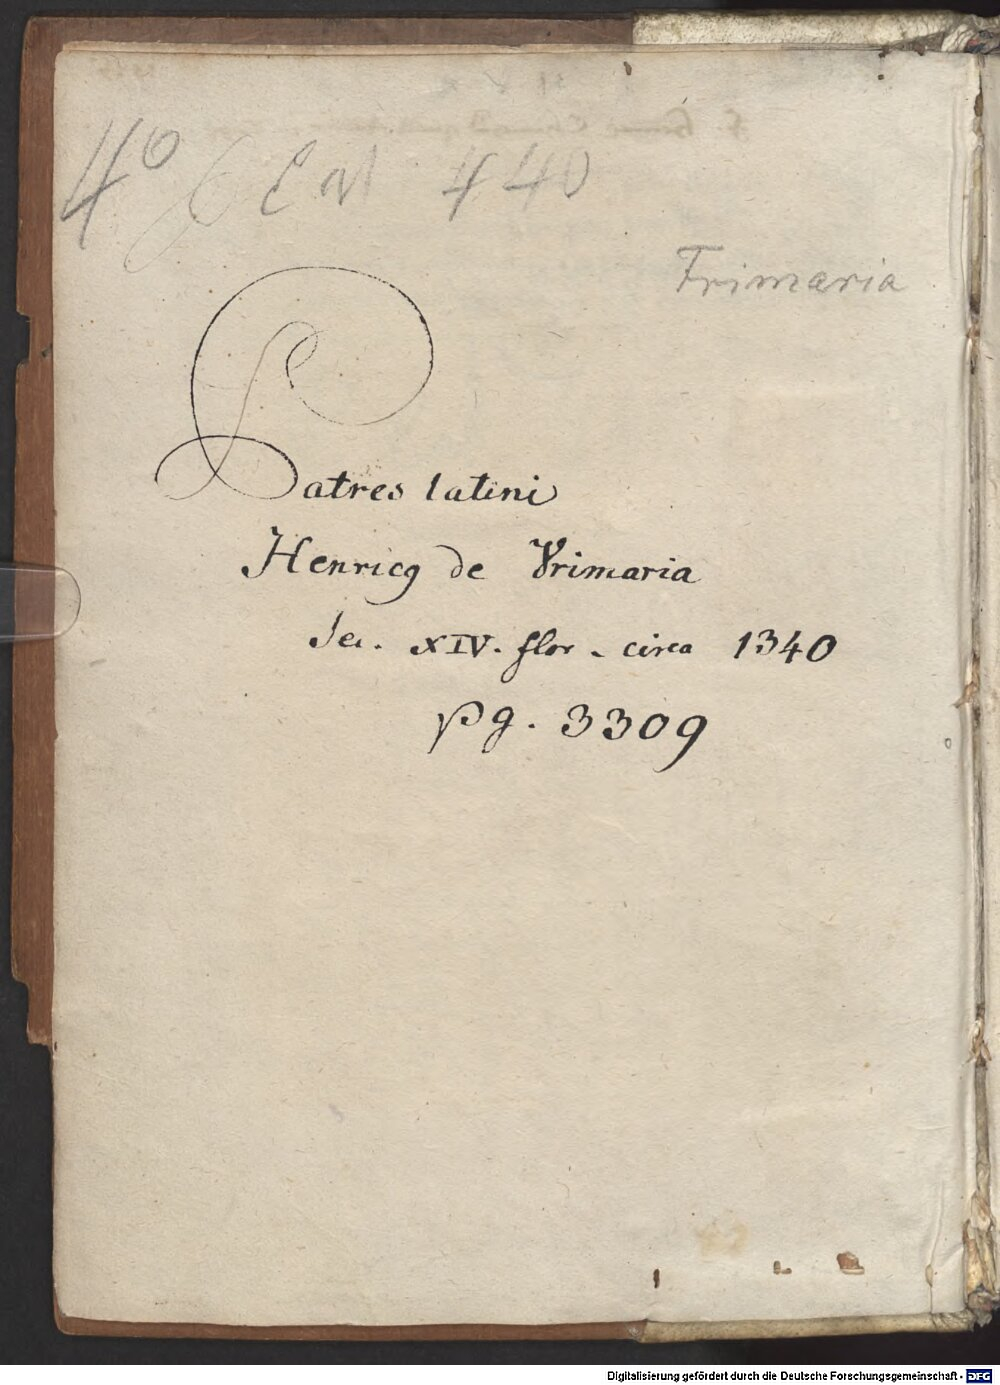 4° 440
Frimaria
Patres latini
Henricꝯ de Vrimaria
Sec. XIV. flor. circa 1340
pg. 3309
Digitalisierung gefördert durch die Deutsche Forschungsgemeinschaft - DFG